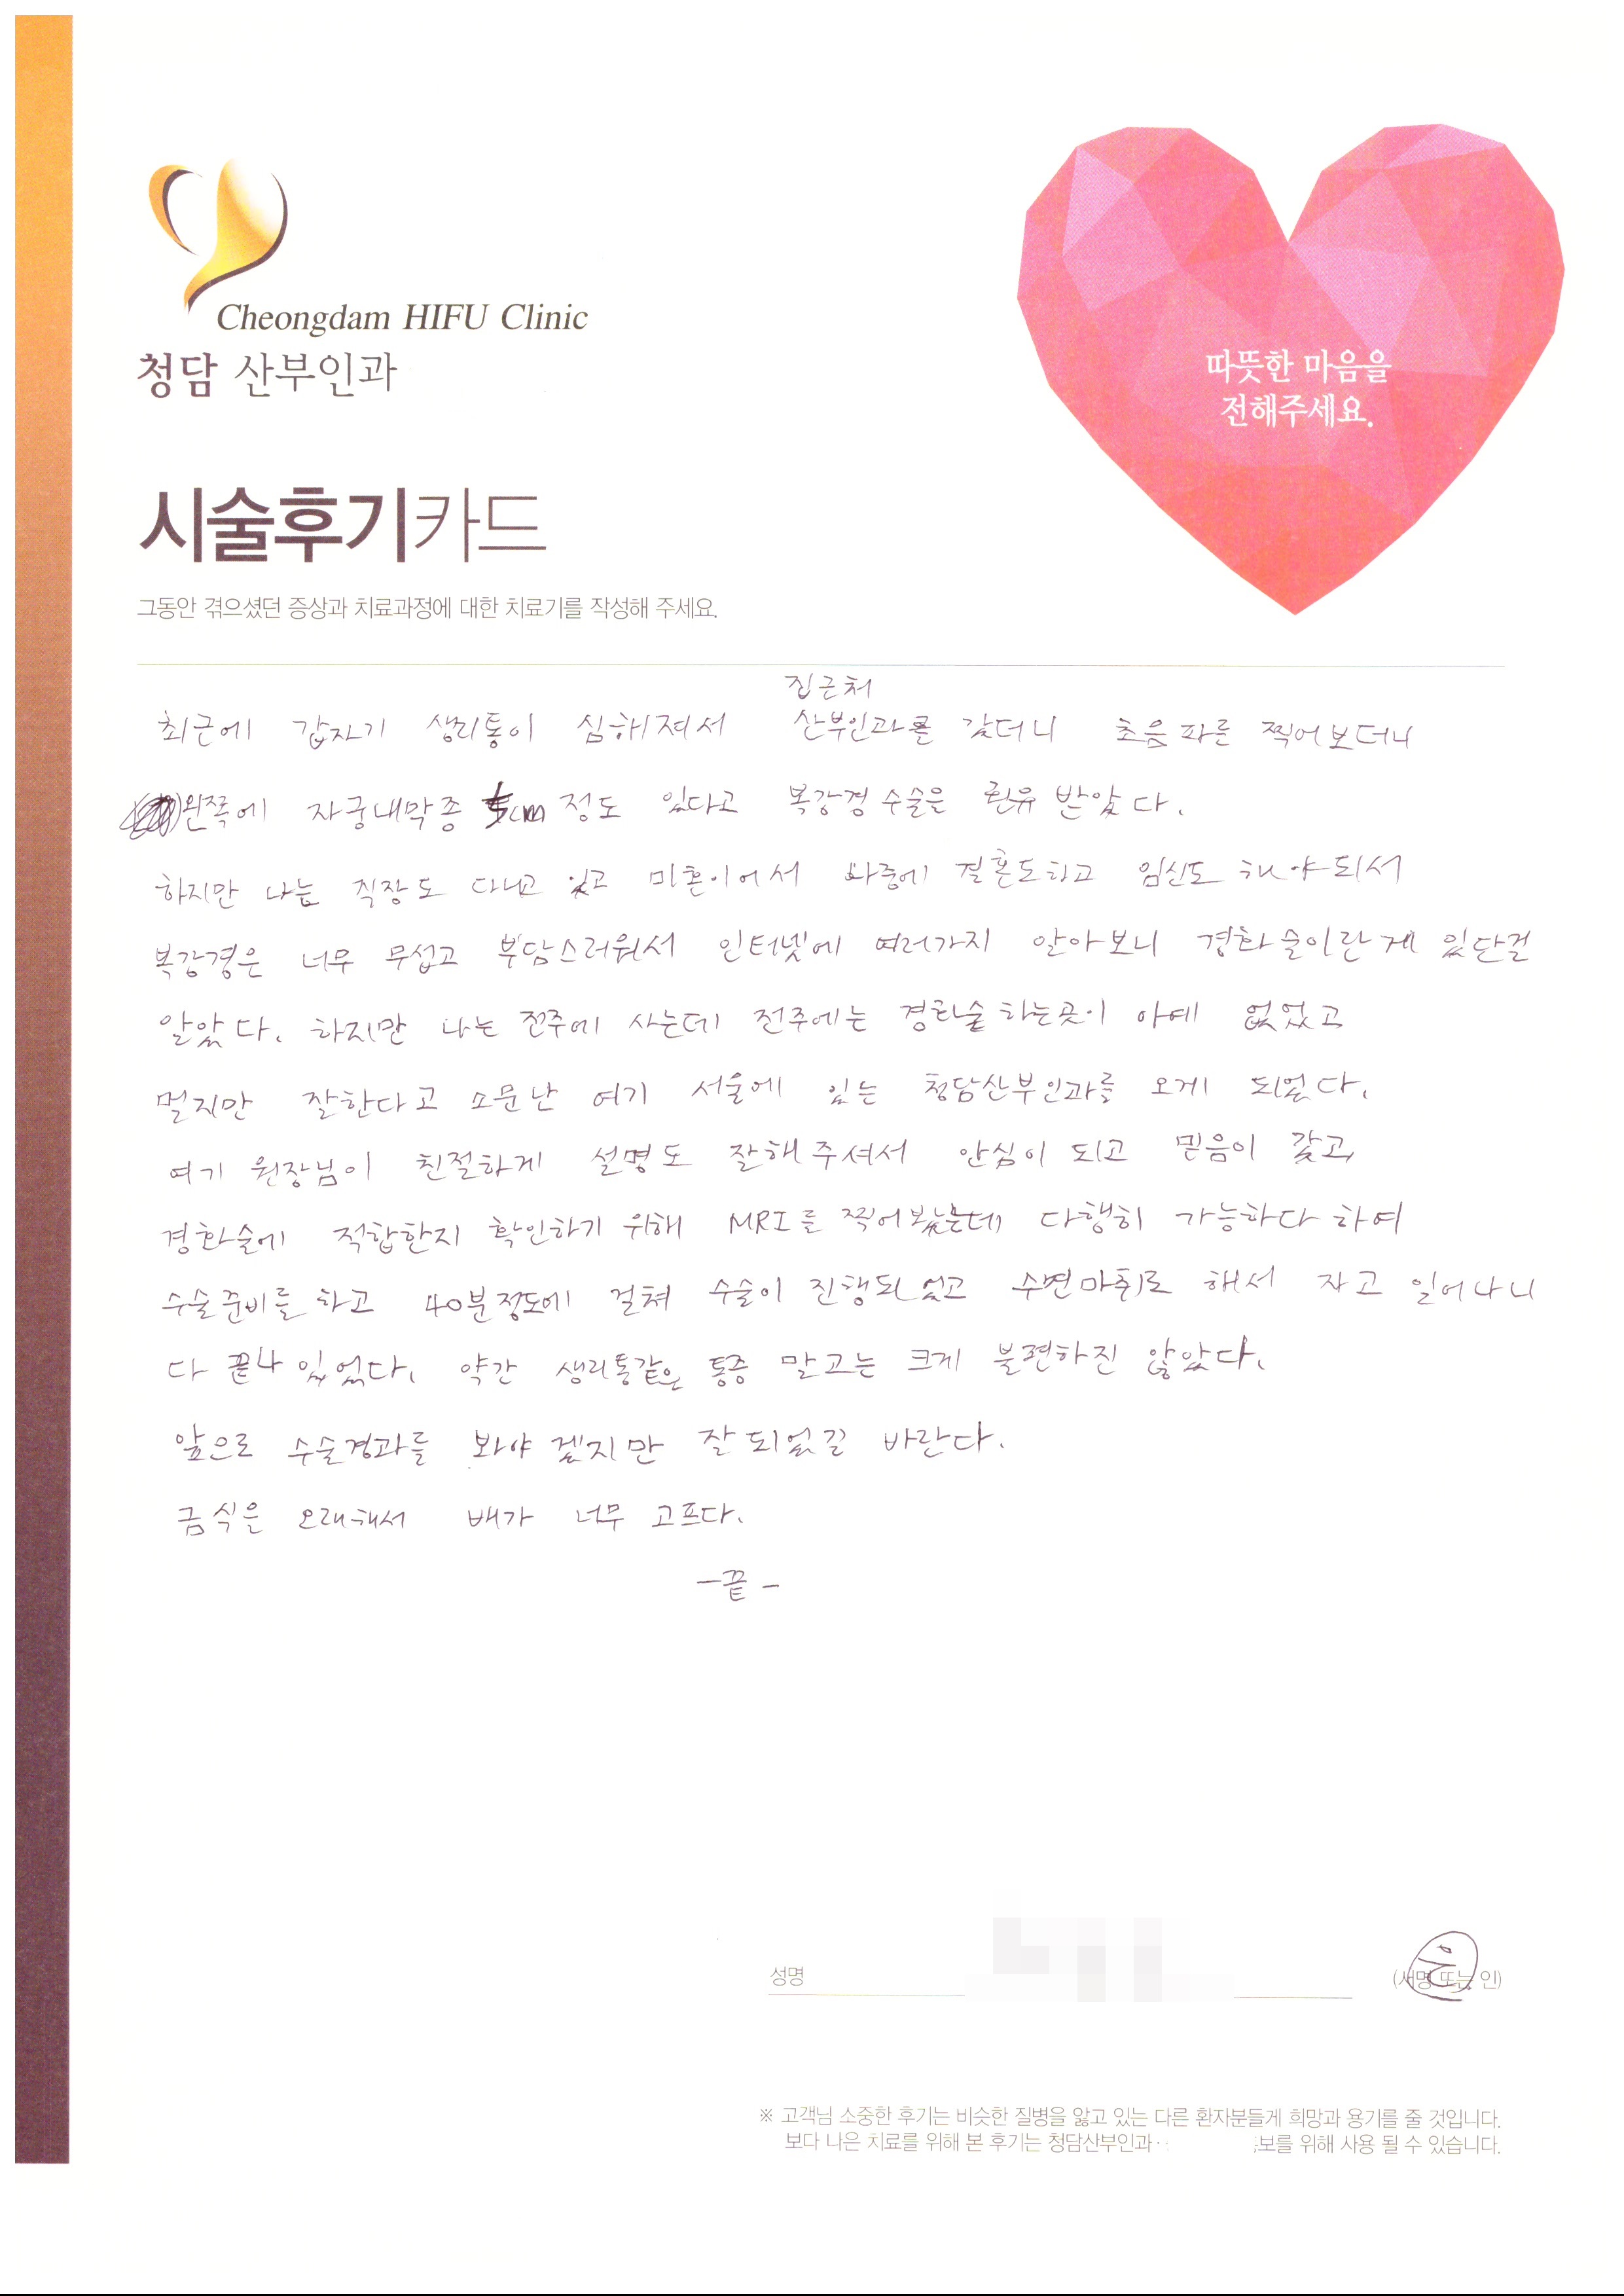 Cheongdam HIFU Clinic
청담 산부인과
따뜻한 마음을
전해주세요.
시술후기카드
그동안 겪으셨던 증상과 치료과정에 대한 치료기를 작성해 주세요.
집근처
최근에 갑자기 생리통이 심해져서 산부인과를 갔더니 초음파를 찍어보더니
왼쪽에 자궁내막종 5cm 정도 있다고 복강경 수술은 권유 받았다.
하지만 나는 직장도 다니고 있고 미혼이어서 나중에 결혼도하고 임신도 해야되서
복강경은 너무 무섭고 부담스러워서 인터넷에 여러가지 알아보니 경화술이란게 있단걸
알았다. 하지만 나는 전주에 사는데 전주에는 경화술 하는곳이 아예 없었고
멀지만 잘한다고 소문난 여기 서울에 있는 청담산부인과를 오게 되었다.
여기 원장님이 친절하게 설명도 잘해주셔서 안심이 되고 믿음이 갔고,
경화술에 적합한지 확인하기 위해 MRI를 찍어봤는데 다행히 가능하다 하여
수술준비를 하고 40분정도에 걸쳐 수술이 진행되었고 수면마취로 해서 자고 일어나니
다 끝나 있었다. 약간 생리통같은 통증 말고는 크게 불편하진 않았다.
앞으로 수술경과를 봐야겠지만 잘 되었길 바란다.
금식을 오래해서 배가 너무 고프다.
-끝-
성명 (서명 또는 인)
※ 고객님 소중한 후기는 비슷한 질병을 앓고 있는 다른 환자분들게 희망과 용기를 줄 것입니다.
보다 나은 치료를 위해 본 후기는 청담산부인과 보를 위해 사용 될 수 있습니다.